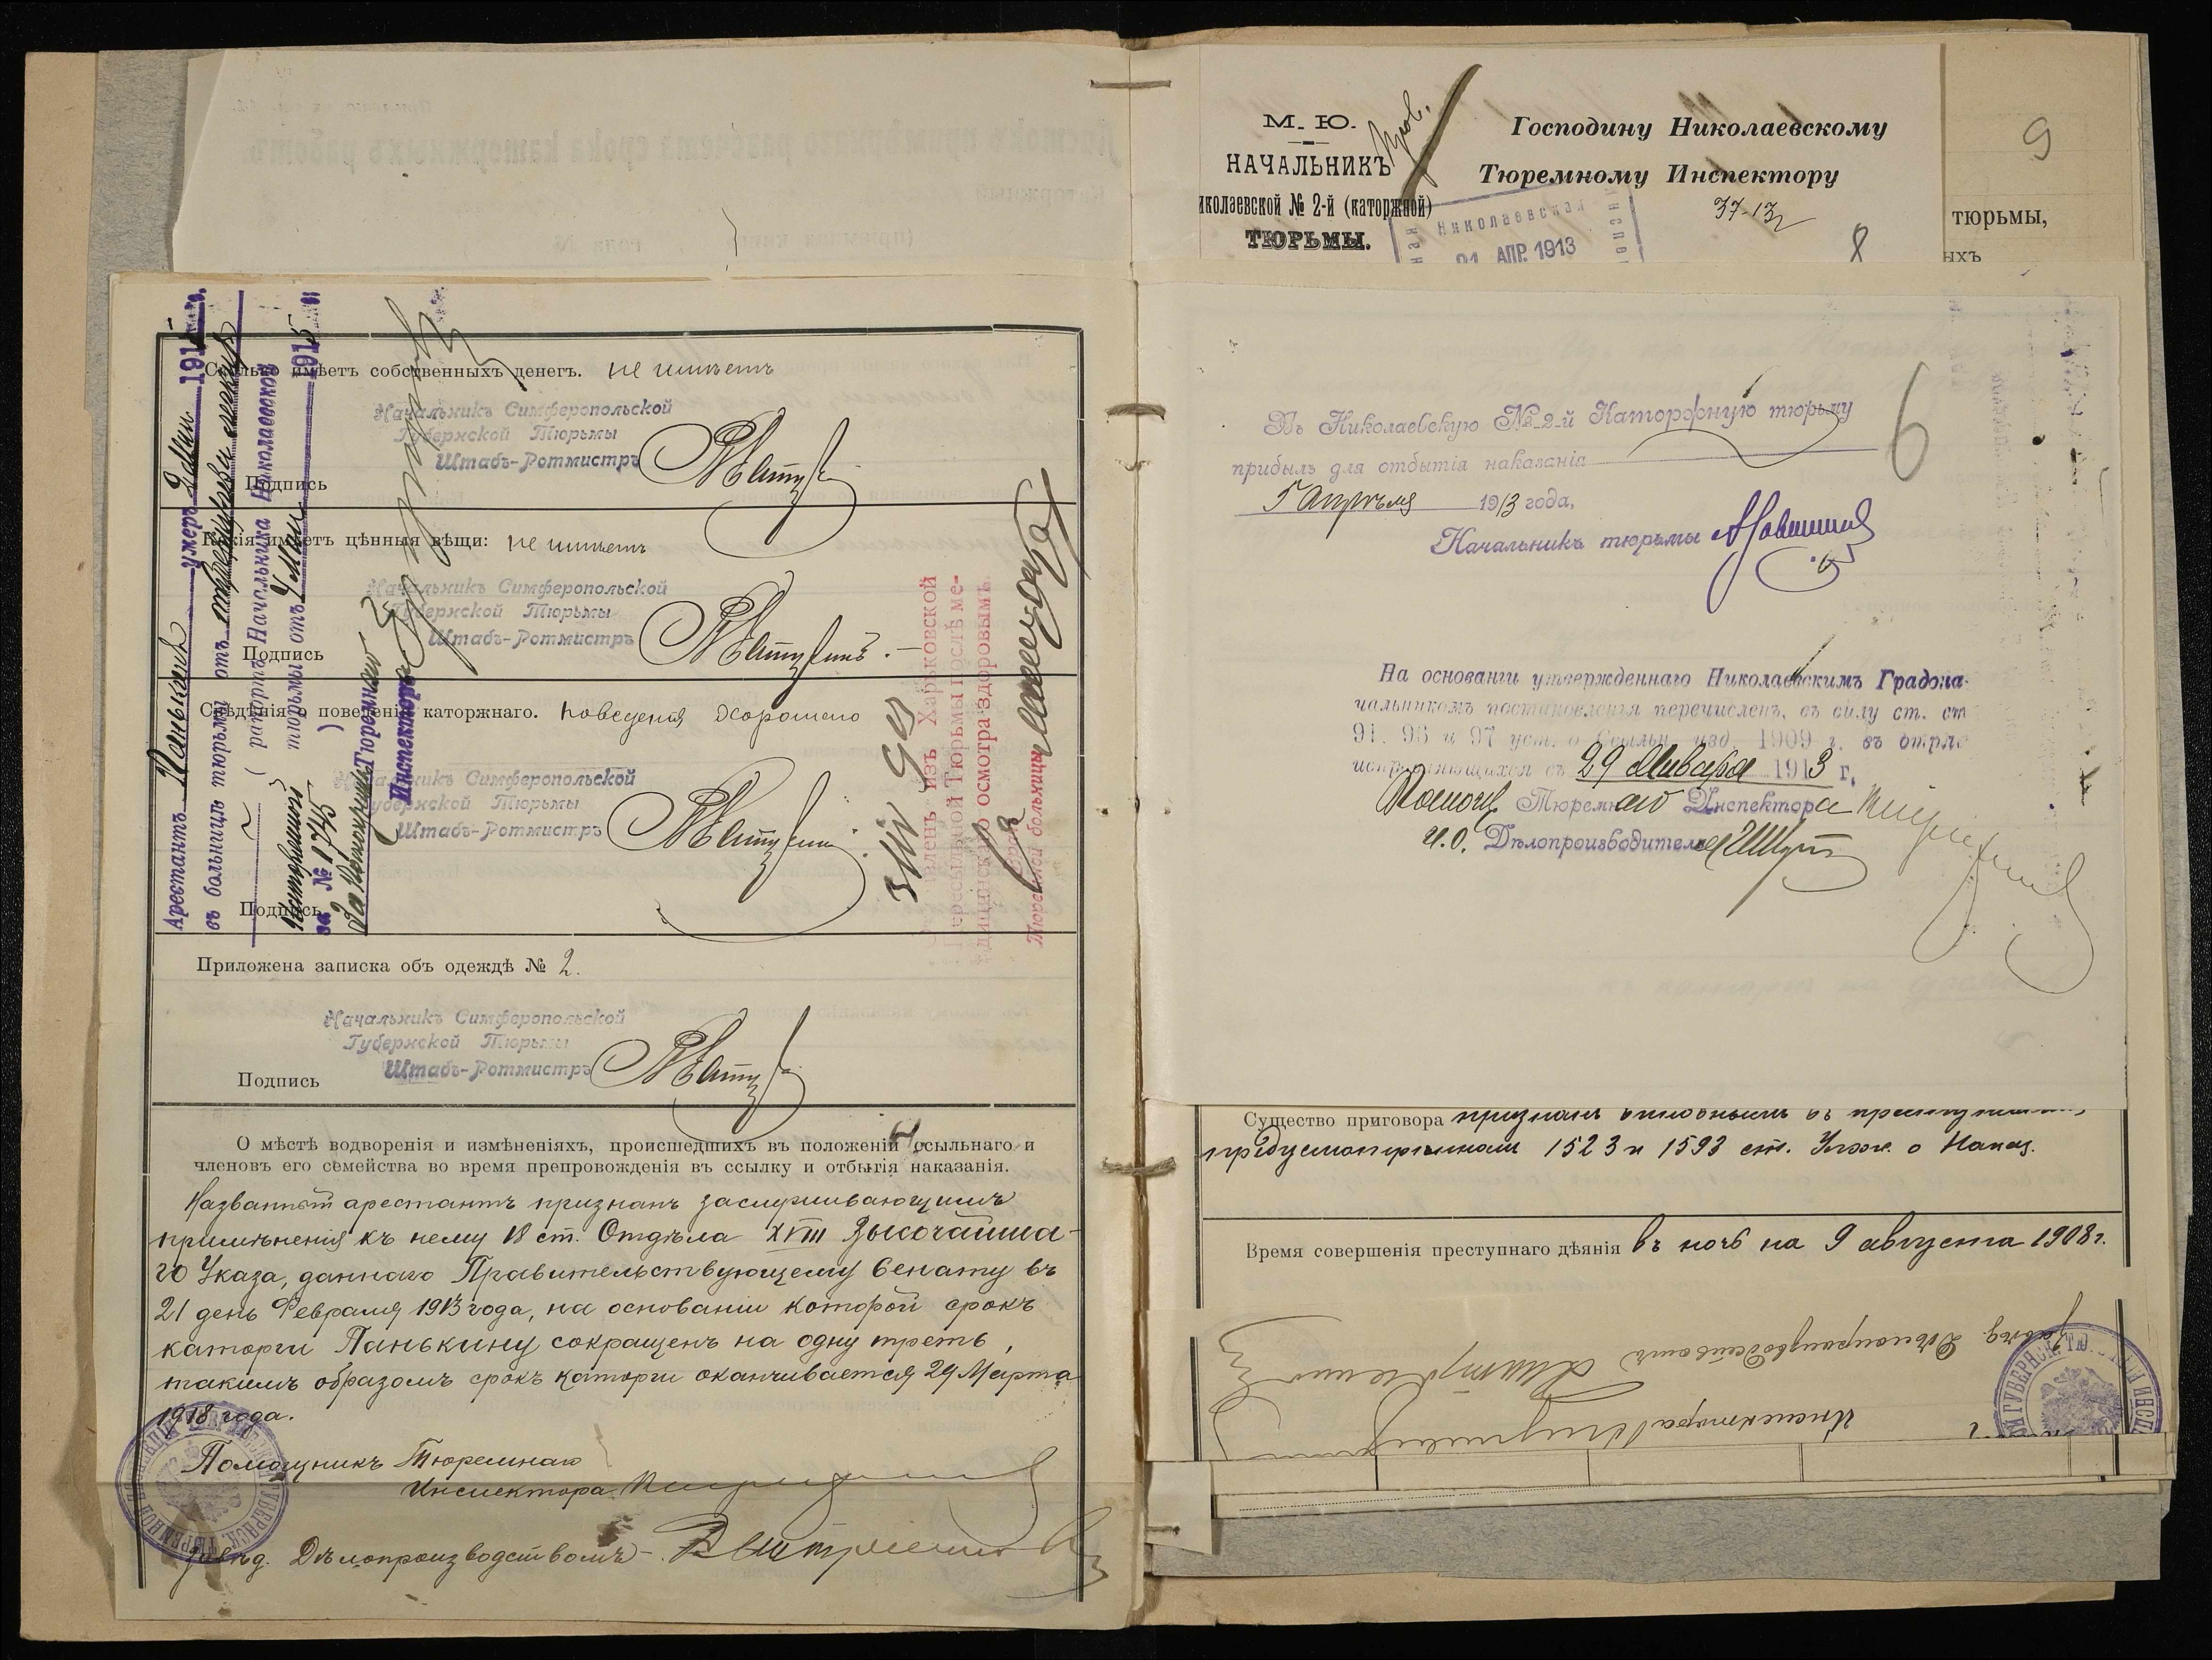 Сколько имѣетъ собственныхъ денегъ. не имѣетъ
Начальникъ Симферопольской
Губернской Тюрьмы
Штабъ-Ротмистръ
Подпись
Какія имѣетъ цѣнныя вѣщи: не имѣетъ
Начальникъ Симферопольской
Губернской Тюрьмы
Штабъ-Ротмистръ
Подпись
Свѣдѣнія о поведеніи каторжнаго. поведенія хорошаго
Начальникъ Симферопольской
Губернской Тюрьмы
Штабъ-Ротмистръ
Подпись
Приложена записка объ одеждѣ № 2.
Начальникъ Симферопольской
Губернской Тюрьмы
Штабъ-Ротмистръ
Подпись
О мѣстѣ водворенія и измѣненіяхъ, происшедшихъ въ положеніи ссыльнаго и
членовъ его семейства во время препровожденія въ ссылку и отбытія наказанія.
Названный арестантъ признанъ заслуживающимъ
примѣненія къ нему 18 ст. Отдѣла XVIII Высочайша-
го Указа, даннаго Правительствующему Сенату въ
21 день Февраля 1913 года, на основаніи которой срокъ
каторги Панькину сокращенъ на одну треть,
такимъ образомъ срокъ каторги оканчивается 29 Марта
1918 года.
Помощникъ Тюремнаго
Инспектора
Завѣд. Дѣлопроизводствомъ
Арестантъ Панькинъ умеръ 2 Мая 1915 г.
въ больницѣ тюрьмы отъ
(рапортъ Начальника Николаевской
тюрьмы отъ 4 Мая 1915
за № 1745)
Тюремнаго
Инспектора
изъ Харьковской
Пересыльной Тюрьмы послѣ ме-
дицинскаго осмотра здоровымъ.
Тюремной больницы
М. Ю.
НАЧАЛЬНИКЪ
иколаевской № 2-й (каторжной)
ТЮРЬМЫ.
Господину Николаевскому
Тюремному Инспектору
37-13
Николаевская
21 АПР. 1913
8
9
тюрьмы,
ыхъ
6
Въ Николаевскую №-2-й Каторжную тюрьму
прибылъ для отбытія наказанія
5 Апрѣля 1913 года,
Начальникъ тюрьмы
На основаніи утвержденнаго Николаевскимъ Градона-
чальникомъ постановленія перечисленъ, въ силу ст. ст
91. 96 и 97 уст. о Ссыльн. изд. 1909 г. въ отря
исправляющихся съ 29 Января 1913 г.
Помощ. Тюремнаго Инспектора
И.О. Дѣлопроизводителя
Существо приговора признанъ виновнымъ въ
предусмотрѣнномъ 1523 и 1593 ст. Улож. о Наказ.
Время совершенія преступнаго дѣянія въ ночь на 9 августа 1908 г.
Завѣд. Дѣлопроизводствомъ
Инспектора